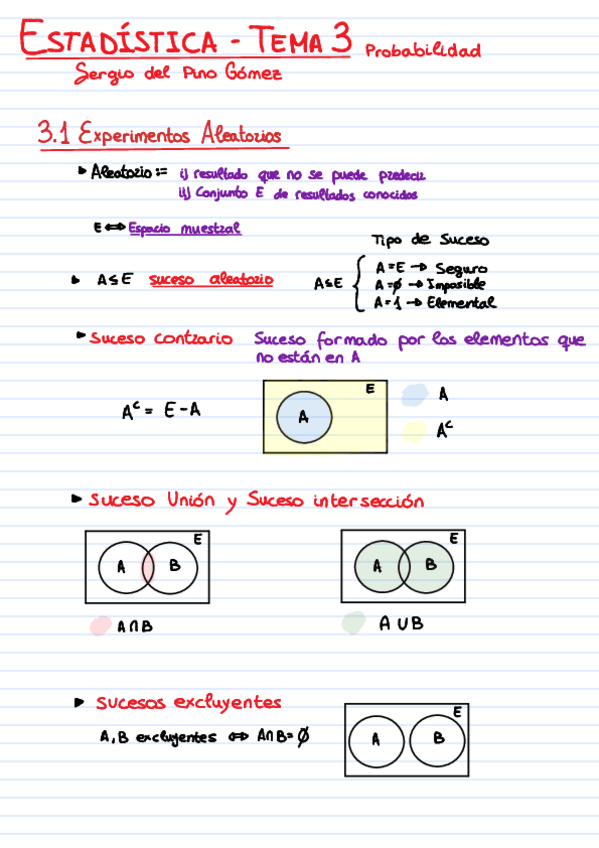 ESTADÍSTICA - TEMA 3 Probabilidad
Sergio del Pino Gómez
3.1 Experimentos Aleatorios
▸ Aleatorio := i) resultado que no se puede predecir
ii) Conjunto E de resultados conocidos
E ⟺ Espacio muestral
Tipo de Suceso
▸ A ≤ E suceso aleatorio
A ≤ E { A = E → Seguro
A = ∅ → Imposible
A = 1 → Elemental
▸ Suceso contrario Suceso formado por los elementos que
no están en A
Aᶜ = E - A
E
A
A
Aᶜ
▸ Suceso Unión y Suceso intersección
E
A B
A ∩ B
E
A B
A ∪ B
▸ Sucesos excluyentes
A, B excluyentes ⟺ A ∩ B = ∅
E
A B